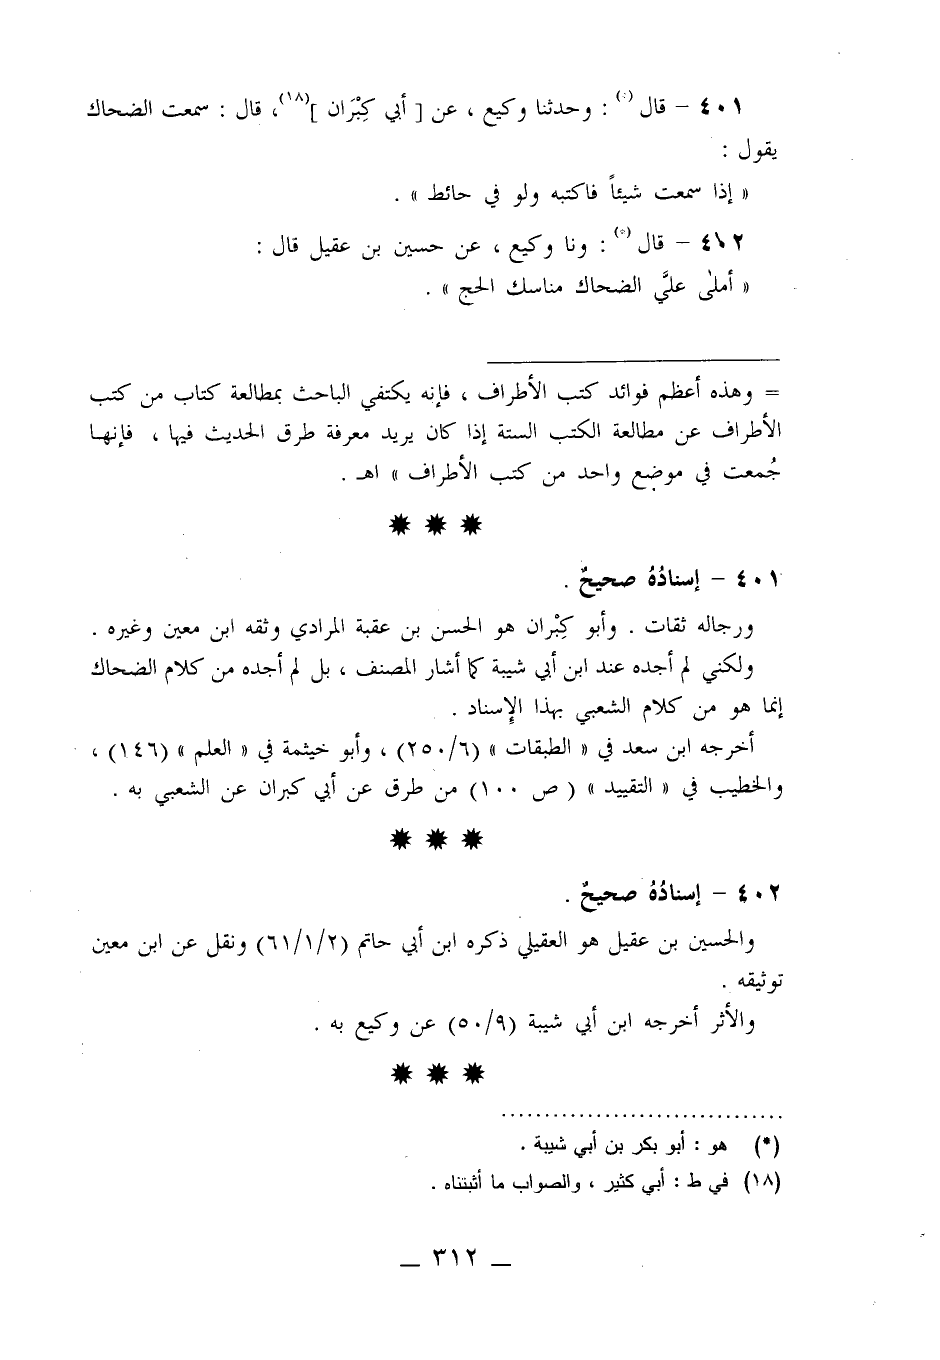 ٤٠١ – قال (*) : وحدثنا وكيع ، عن [ أبي كِبْرَان ](١٨)، قال : سمعت الضحاك
يقول :
« إذا سمعت شيئاً فاكتبه ولو في حائط » .
٤٠٢ – قال (*) : ونا وكيع ، عن حسين بن عقيل قال :
« أملىٰ عليَّ الضحاك مناسك الحج » .
= وهذه أعظم فوائد كتب الأطراف ، فإنه يكتفي الباحث بمطالعة كتاب من كتب
الأطراف عن مطالعة الكتب الستة إذا كان يريد معرفة طرق الحديث فيها ، فإنهـا
جُمعت في موضع واحد من كتب الأطراف » اهـ .
✸ ✸ ✸
٤٠١ – إسنادُهُ صحيحٌ .
ورجاله ثقات . وأبو كِبْران هو الحسن بن عقبة المرادي وثقه ابن معين وغيره .
ولكني لم أجده عند ابن أبي شيبة كما أشار المصنف ، بل لم أجده من كلام الضحاك
إنما هو من كلام الشعبي بهذا الإسناد .
أخرجه ابن سعد في « الطبقات » (٢٥٠/٦) ، وأبو خيثمة في « العلم » (١٤٦) ،
والخطيب في « التقييد » ( ص ١٠٠) من طرق عن أبي كبران عن الشعبي به .
✸ ✸ ✸
٤٠٢ – إسنادُهُ صحيحٌ .
والحسين بن عقيل هو العقيلي ذكره ابن أبي حاتم (٦١/١/٢) ونقل عن ابن معين
توثيقه .
والأثر أخرجه ابن أبي شيبة (٥٠/٩) عن وكيع به .
✸ ✸ ✸
(*) هو : أبو بكر بن أبي شيبة .
(١٨) في ط : أبي كثير ، والصواب ما أثبتناه .
– ٣١٢ –